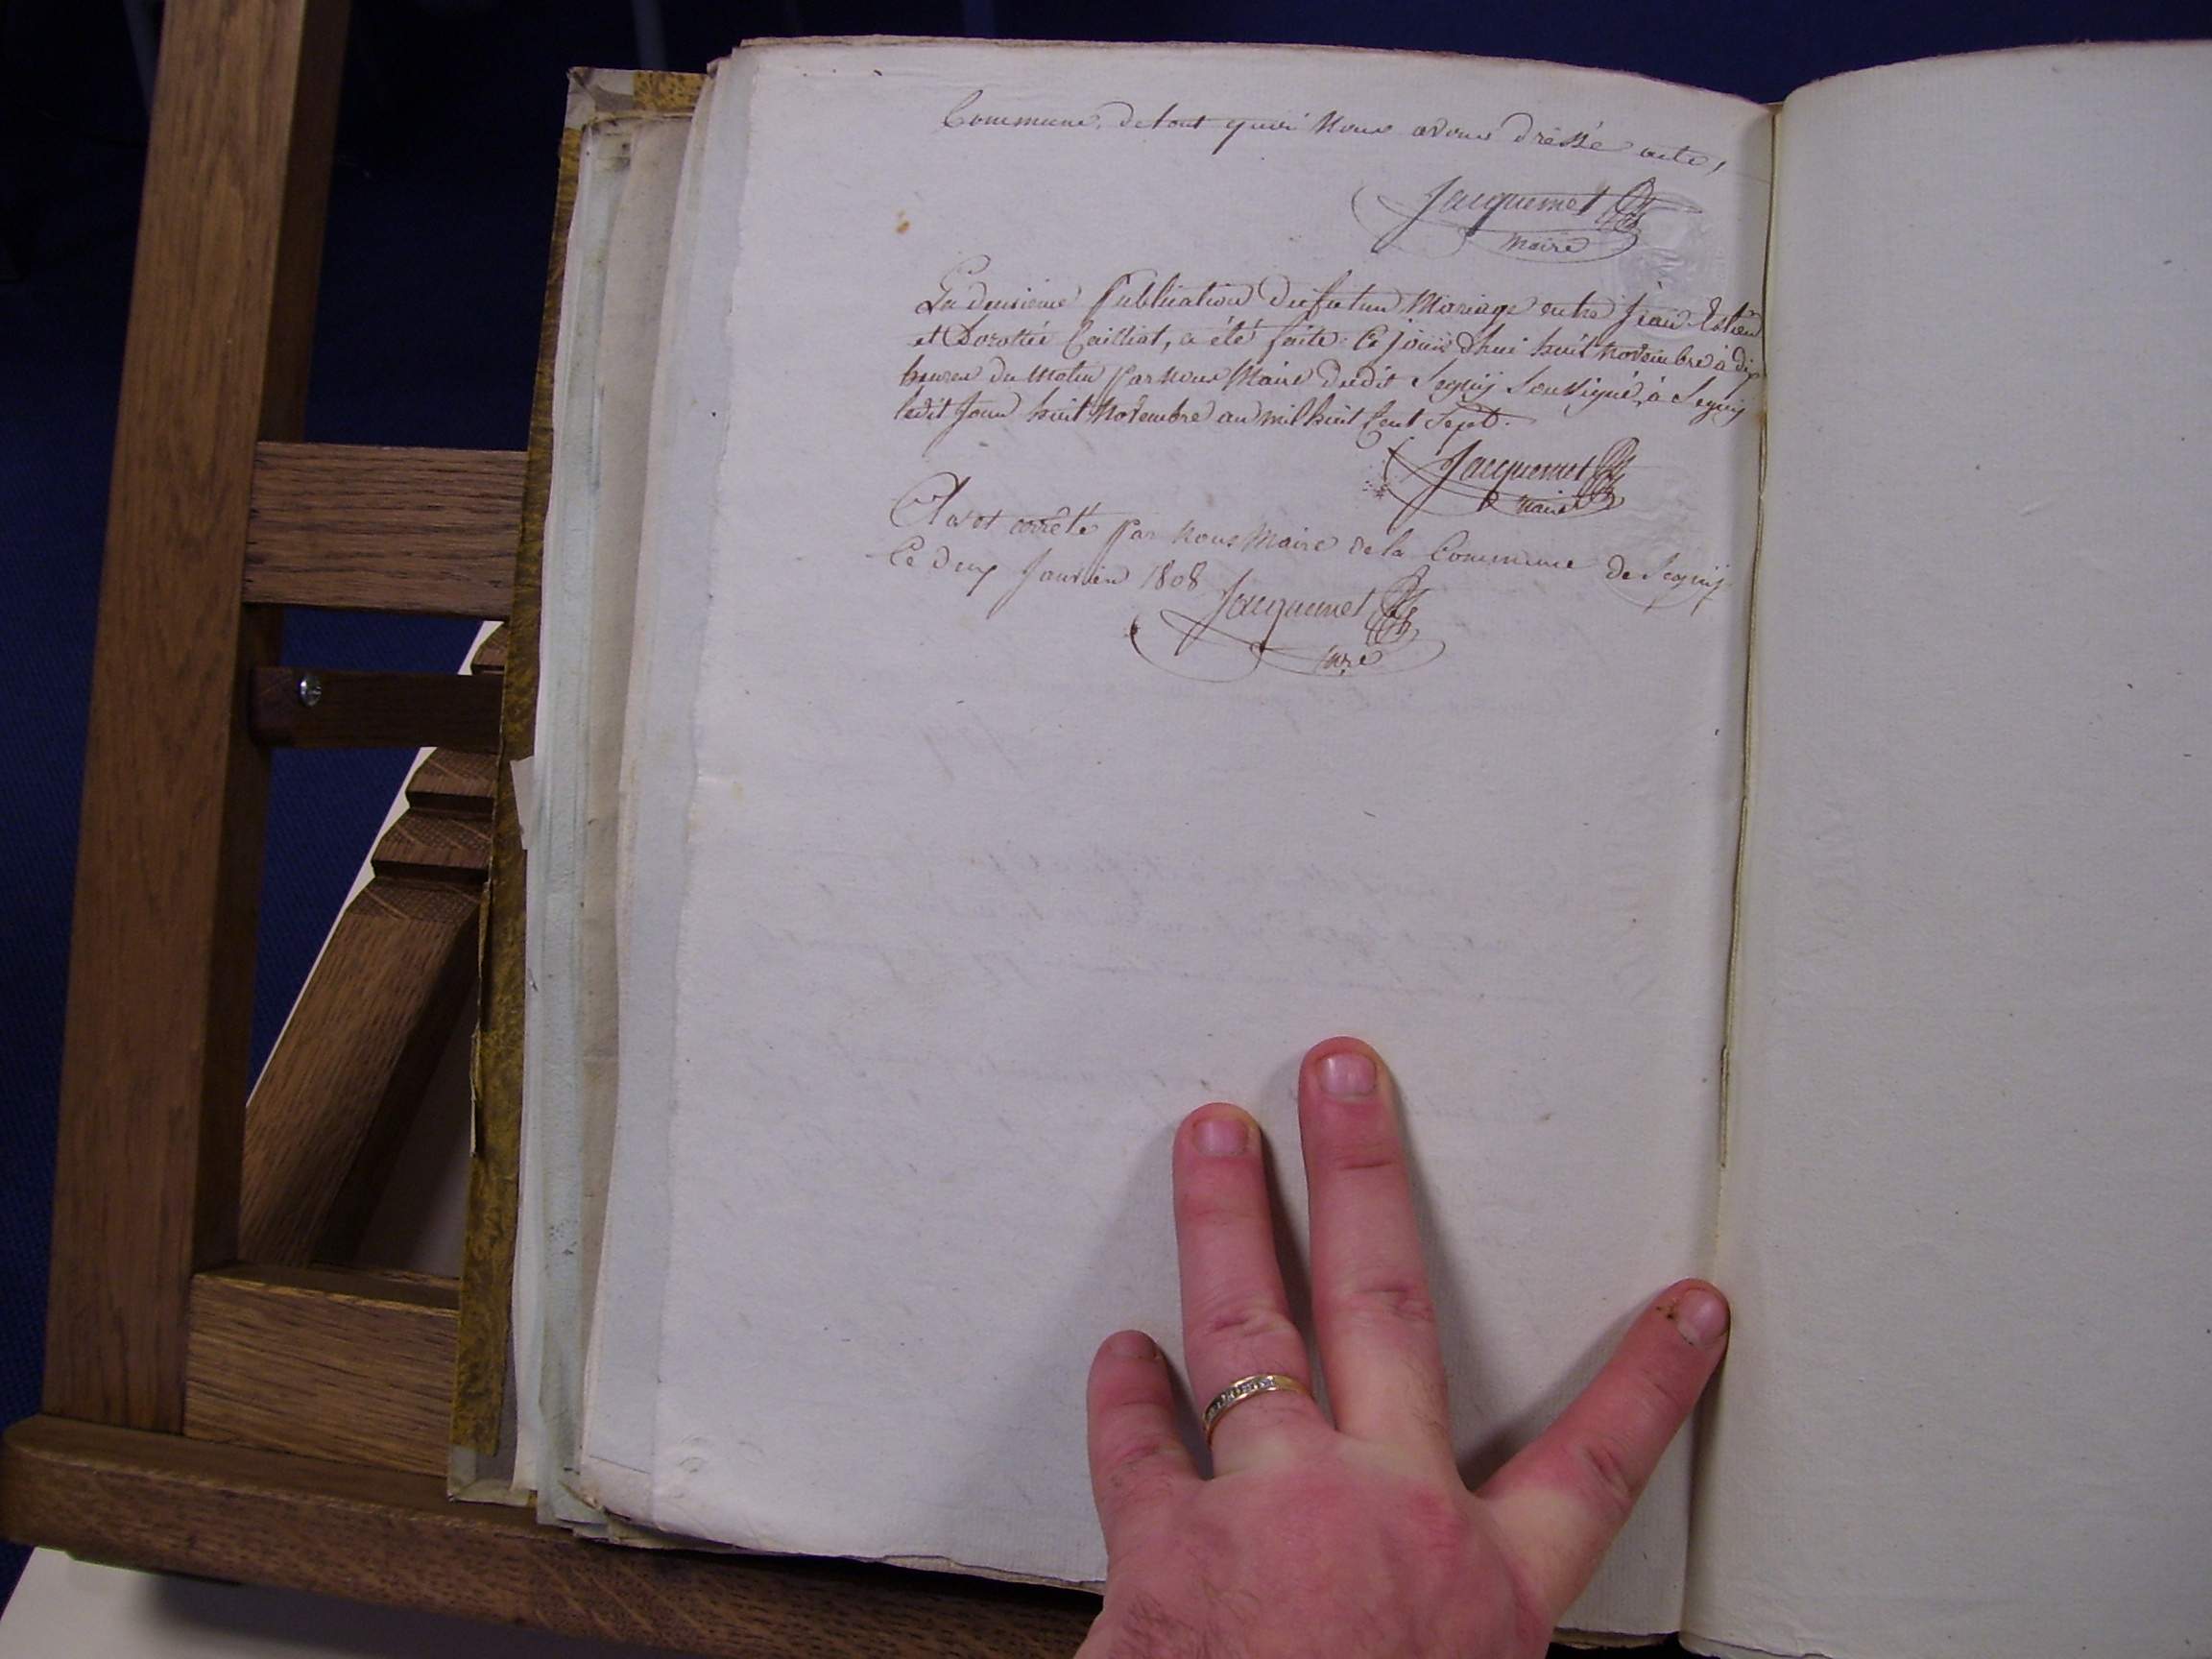 Commune, de tout quoi Nous avons dressé acte,
Jacquemet
maire
La deuxieme Publication du futur Mariage entre Jean
et Dorothée Cailliat, a été faite ce jourd'hui huit Novembre à dix
heures du Matin par Nous Maire dudit Segny Soussigné, à Segny
ledit Jour huit Novembre an mil huit Cent Sept.
Jacquemet
maire
Clos et arrêté par Nous Maire de la Commune de Segny
Ce deux Janvier 1808
Jacquemet